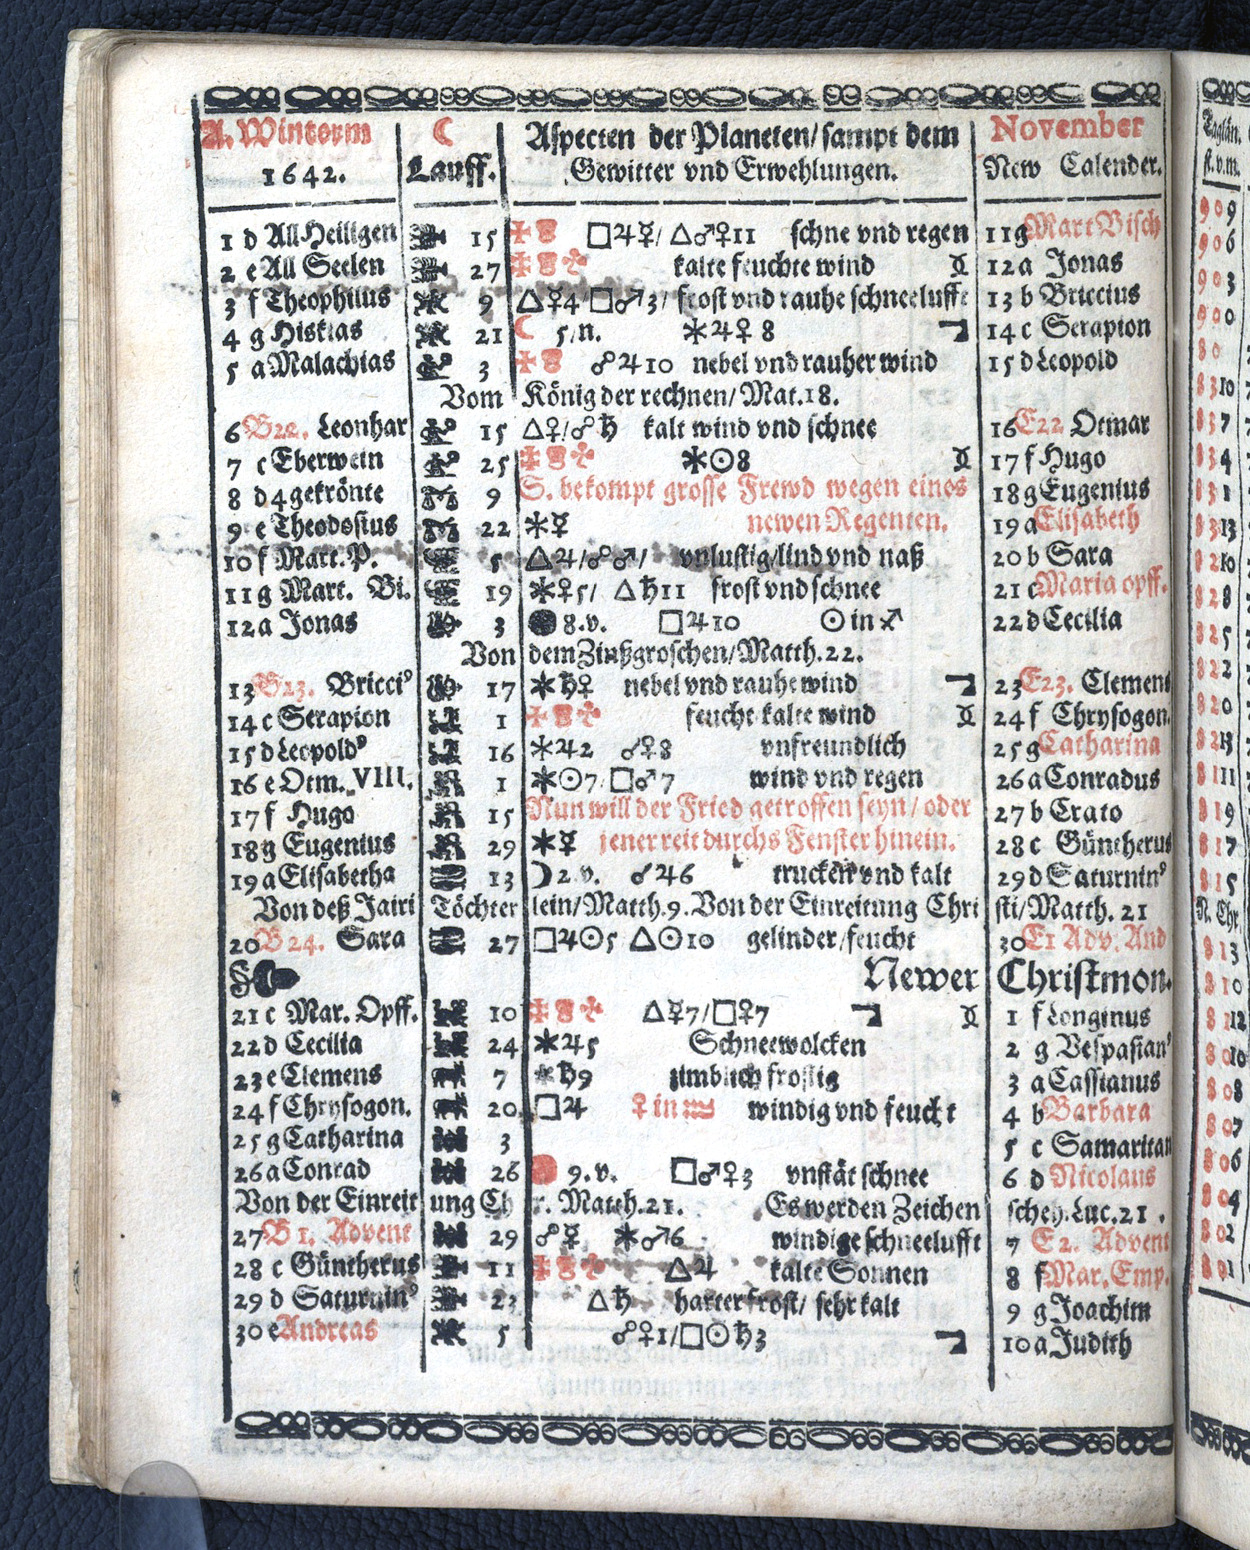 A. Winterm ☾ Aſpecten der Planeten/ ſampt dem November
1642. Lauff. Gewitter vnd Erwehlungen. New Calender.
1 d All Heiligen 15 □♃☿/ △♂♀11 ſchne vnd regen 11 g Mart Biſch
2 e All Seelen 27 kalte feuchte wind 12 a Jonas
3 f Theophilus 9 △☿4/□♂3/ froſt vnd rauhe ſchneelufft 13 b Briccius
4 g Hiskias 21 ☾ 5/n. ✶♃♀ 8 14 c Serapion
5 a Malachias 3 ☍♃10 nebel vnd rauher wind 15 d Leopold
Vom König der rechnen/ Mat.18.
6 B22. Leonhar 15 △♀/☍♄ kalt wind vnd ſchnee 16 E22 Otmar
7 c Eberwein 25 ✶☉8 17 f Hugo
8 d 4 gekrönte 9 S. bekompt groſſe Frewd wegen eines 18 g Eugenius
9 e Theodoſius 22 ✶☿ newen Regenten. 19 a Eliſabeth
10 f Mart. P. 5 △♃/☍♂/ vnluſtig/lind vnd naß 20 b Sara
11 g Mart. Bi. 19 ✶♀5/ △♄11 froſt vnd ſchnee 21 c Maria opff.
12 a Jonas 3 ● 8.v. □♃10 ☉ in ♐ 22 d Cecilia
Von dem Zinßgroſchen/Matth.22.
13 B23. Bricciꝰ 17 ✶♄♀ nebel vnd rauhe wind 23 E23. Clemens
14 c Serapion 1 feucht kalte wind 24 f Chryſogon.
15 d Leopoldꝰ 16 ✶♃2 ☌♀8 vnfreundlich 25 g Catharina
16 e Otm. VIII. 1 ✶☉7 □♂7 wind vnd regen 26 a Conradus
17 f Hugo 15 Nun will der Fried getroffen ſeyn/ oder 27 b Crato
18 g Eugenius 29 ✶☿ jener reit durchs Fenſter hinein. 28 c Güntherus
19 a Eliſabetha 13 ☽ 2.v. ☌♃6 trucken vnd kalt 29 d Saturninꝰ
Von deß Jairi Töchterlein/Matth.9. Von der Einreitung Chriſti/Matth. 21
20 B24. Sara 27 □♃☉5 △☉10 gelinder/feucht 30 E1 Adv. And
Newer Chriſtmon.
21 c Mar. Opff. 10 △☿7/□♀7 1 f Longinus
22 d Cecilia 24 ✶♃5 Schneewolcken 2 g Veſpaſianꝰ
23 e Clemens 7 ✶♄9 zimblich froſtig 3 a Caſſianus
24 f Chryſogon. 20 □♃ ♀ in ♒ windig vnd feucht 4 b Barbara
25 g Catharina 3 5 c Samaritan
26 a Conrad 26 9.v. □♂♀3 vnſtät ſchnee 6 d Nicolaus
Von der Einreitung Chr. Matth.21. Es werden Zeichen ſcheh. Luc.21.
27 B1. Advent 29 ☍☿ ✶♂6 windige ſchneelufft 7 E2. Advent
28 c Güntherus 11 △♃ kalte Sonnen 8 f Mar. Emp.
29 d Saturninꝰ 23 △♄ harter froſt/ ſehr kalt 9 g Joachim
30 e Andreas 5 ☍♀1/□☉♄3 10 a Judith